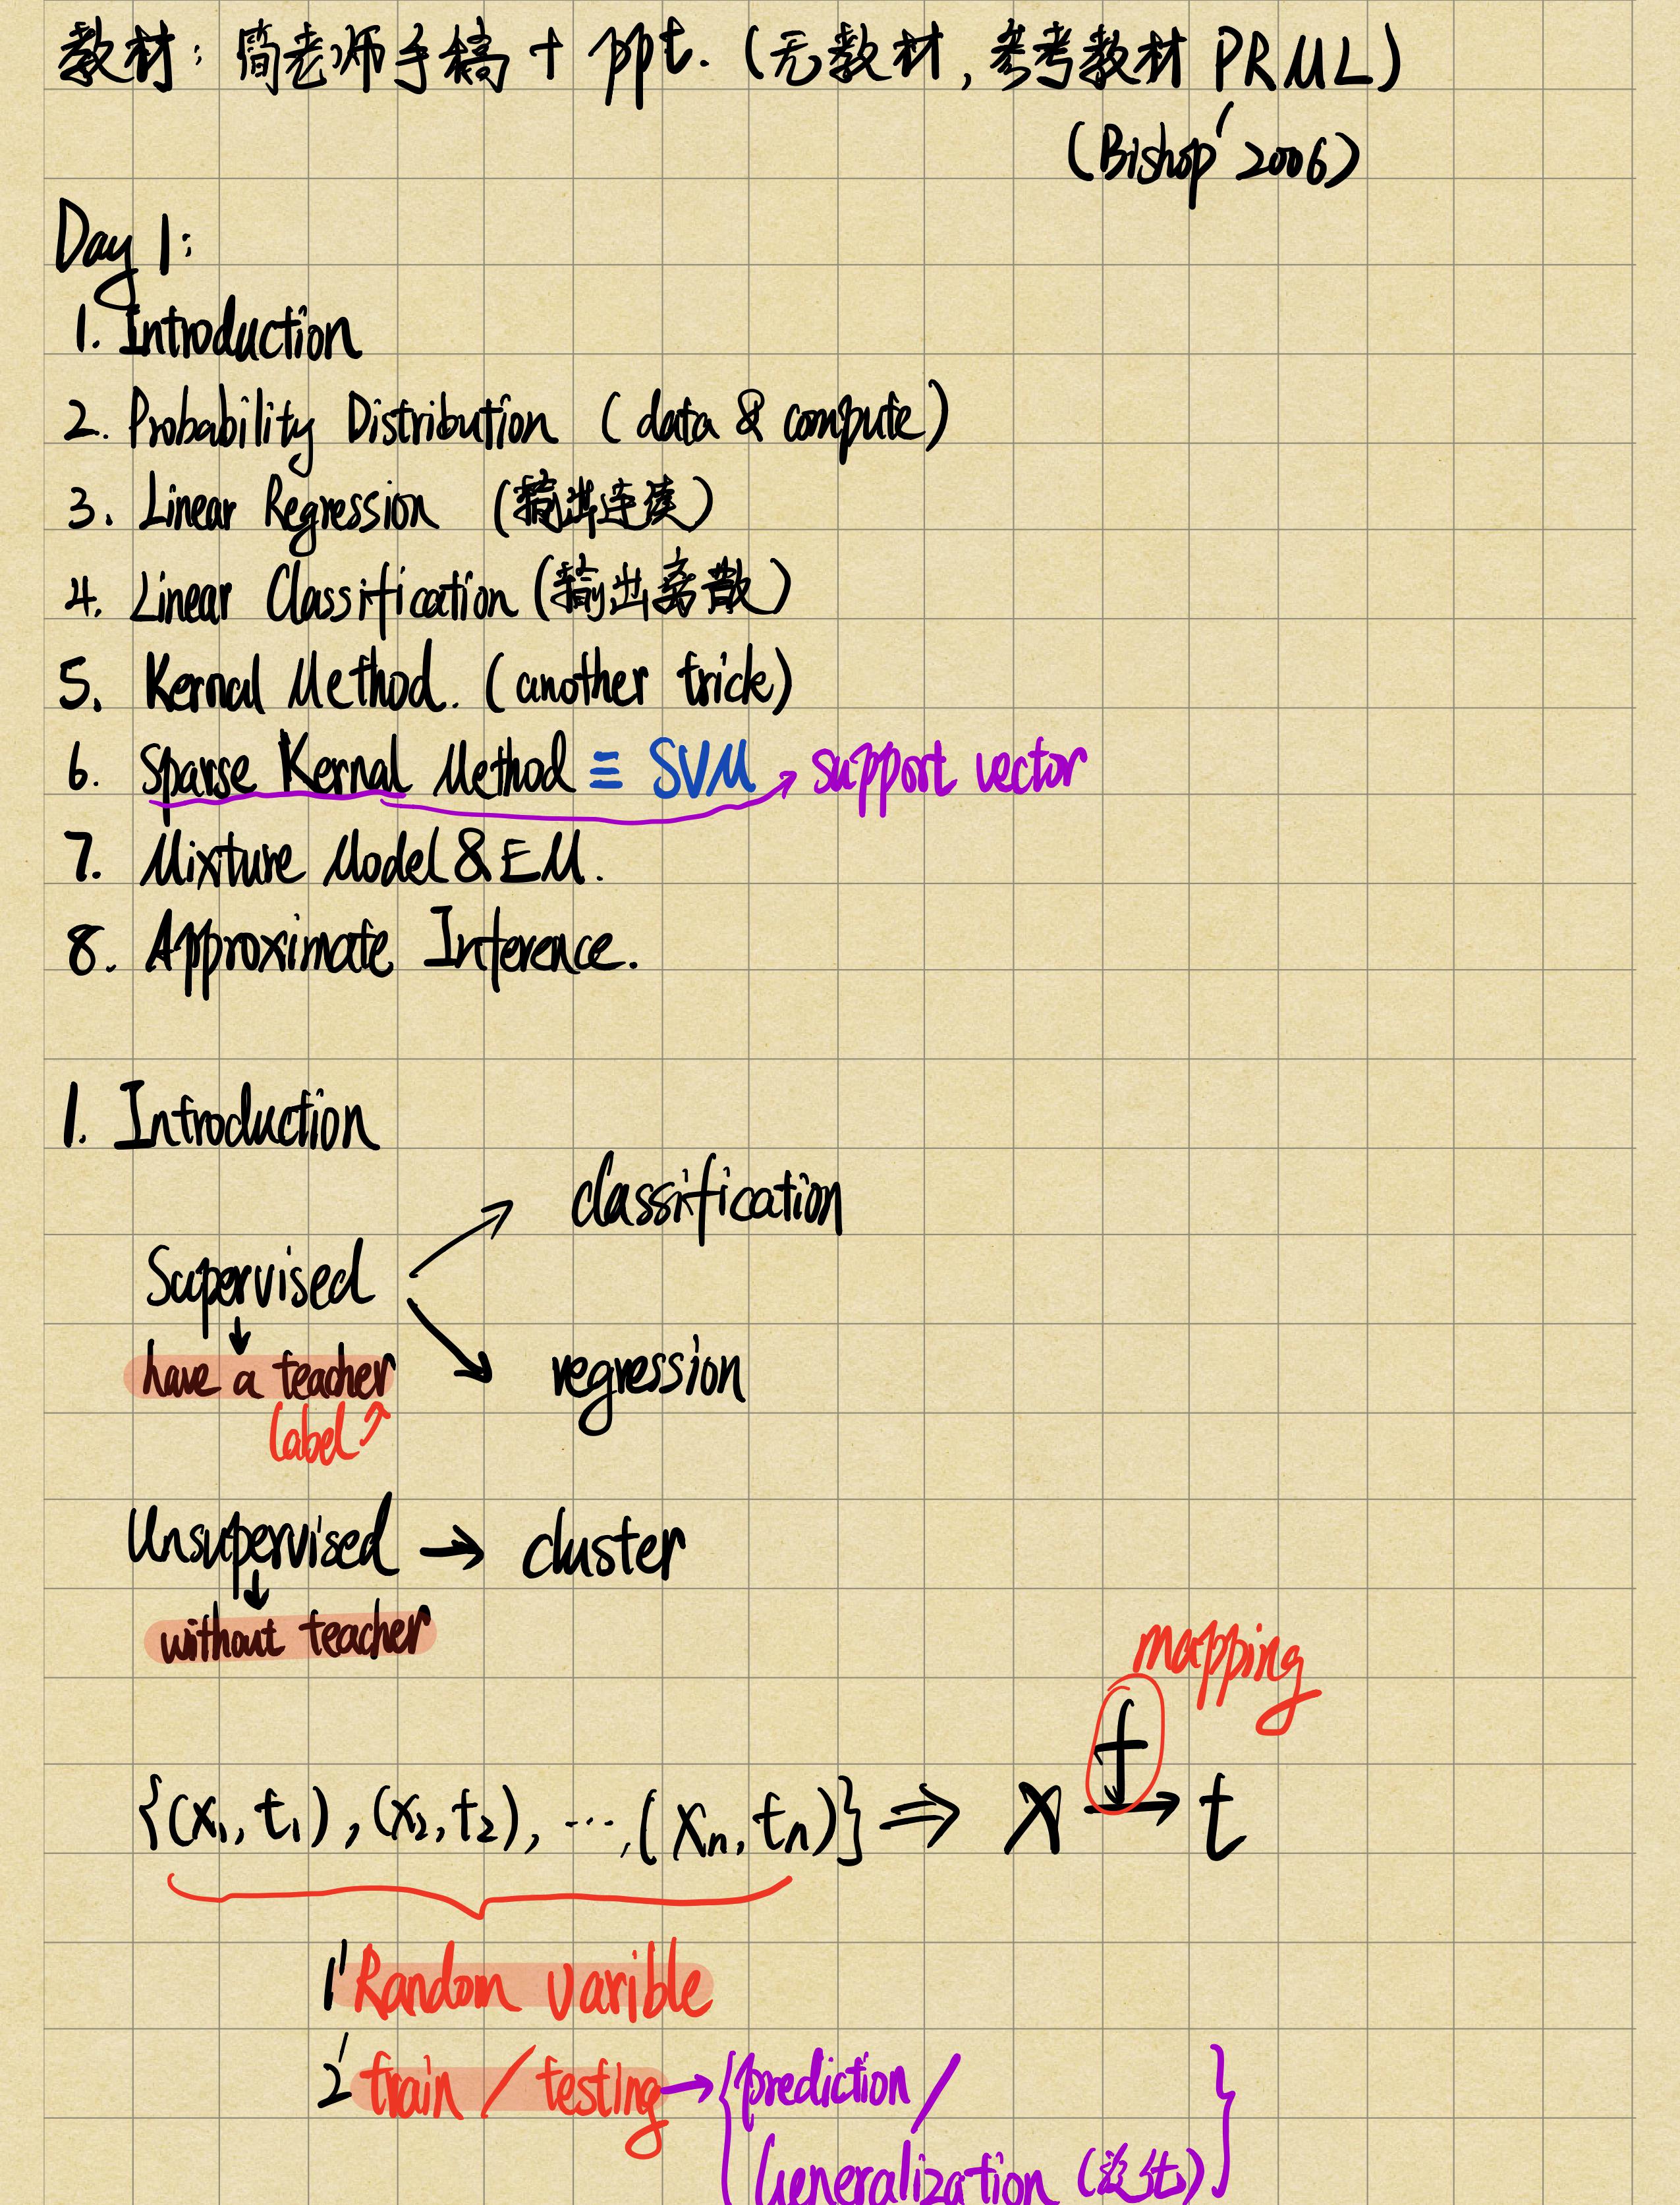 教材: 简老师手稿 + ppt. (无教材, 参考教材 PRML)
(Bishop' 2006)
Day 1:
1. Introduction
2. Probability Distribution ( data & compute)
3. Linear Regression (输出连续)
4. Linear Classification (输出离散)
5. Kernal Method. (another trick)
6. Sparse Kernal Method ≡ SVM → support vector
7. Mixture Model & EM.
8. Approximate Inference.
1. Introduction
classification
Supervised
have a teacher
regression
label↗
Unsupervised → cluster
without teacher
mapping
f
{(x₁, t₁), (x₂, t₂), ..., (xₙ, tₙ)} ⇒ x → t
1' Random varible
2' train / testing → {prediction /
Generalization (泛化)}